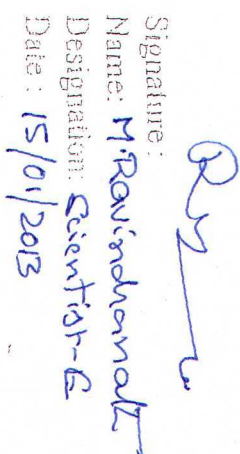 Signature:
Name: M. Ravindranath
Designation: Scientist-E
Date: 15/01/2013